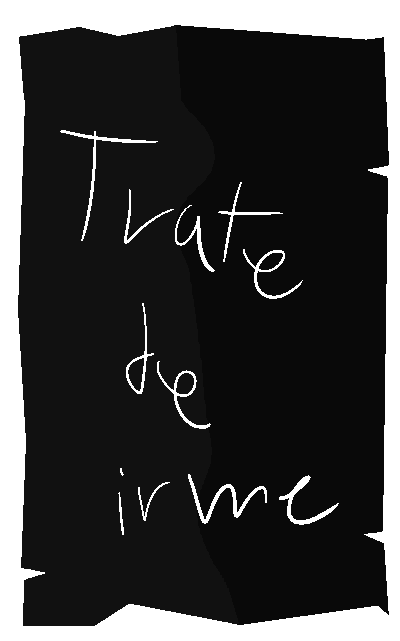 Trate
de
irme